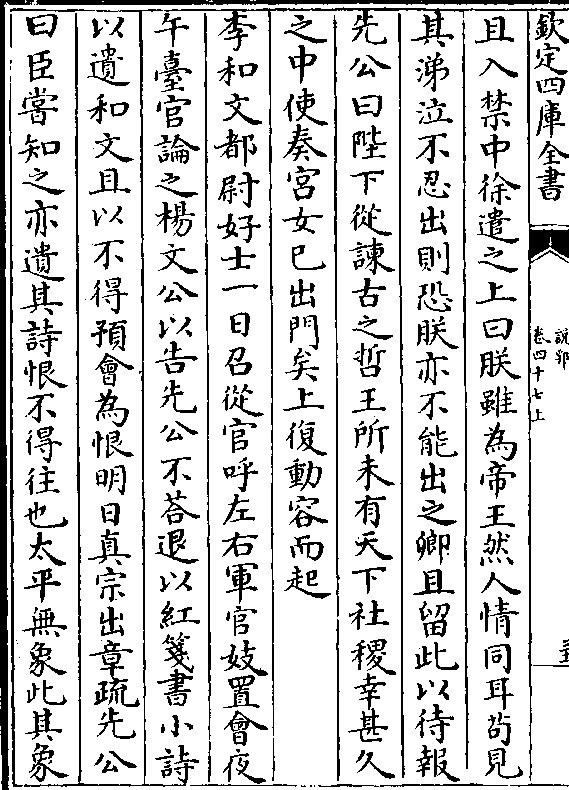 欽定四庫全書
說郛
卷四十七上
且入禁中徐遣之上曰朕雖為帝王然人情同耳茍見
其涕泣不忍出則恐朕亦不能出之卿且留此以待報
先公曰陛下從諫古之哲王所未有天下社稷幸甚久
之中使奏宮女已出門矣上復動容而起
李和文都尉好士一日召從官呼左右軍官妓置會夜
午臺官論之楊文公以告先公不荅退以紅箋書小詩
以遺和文且以不得預會為恨明日真宗出章疏先公
曰臣嘗知之亦遺其詩恨不得往也太平無象此其象